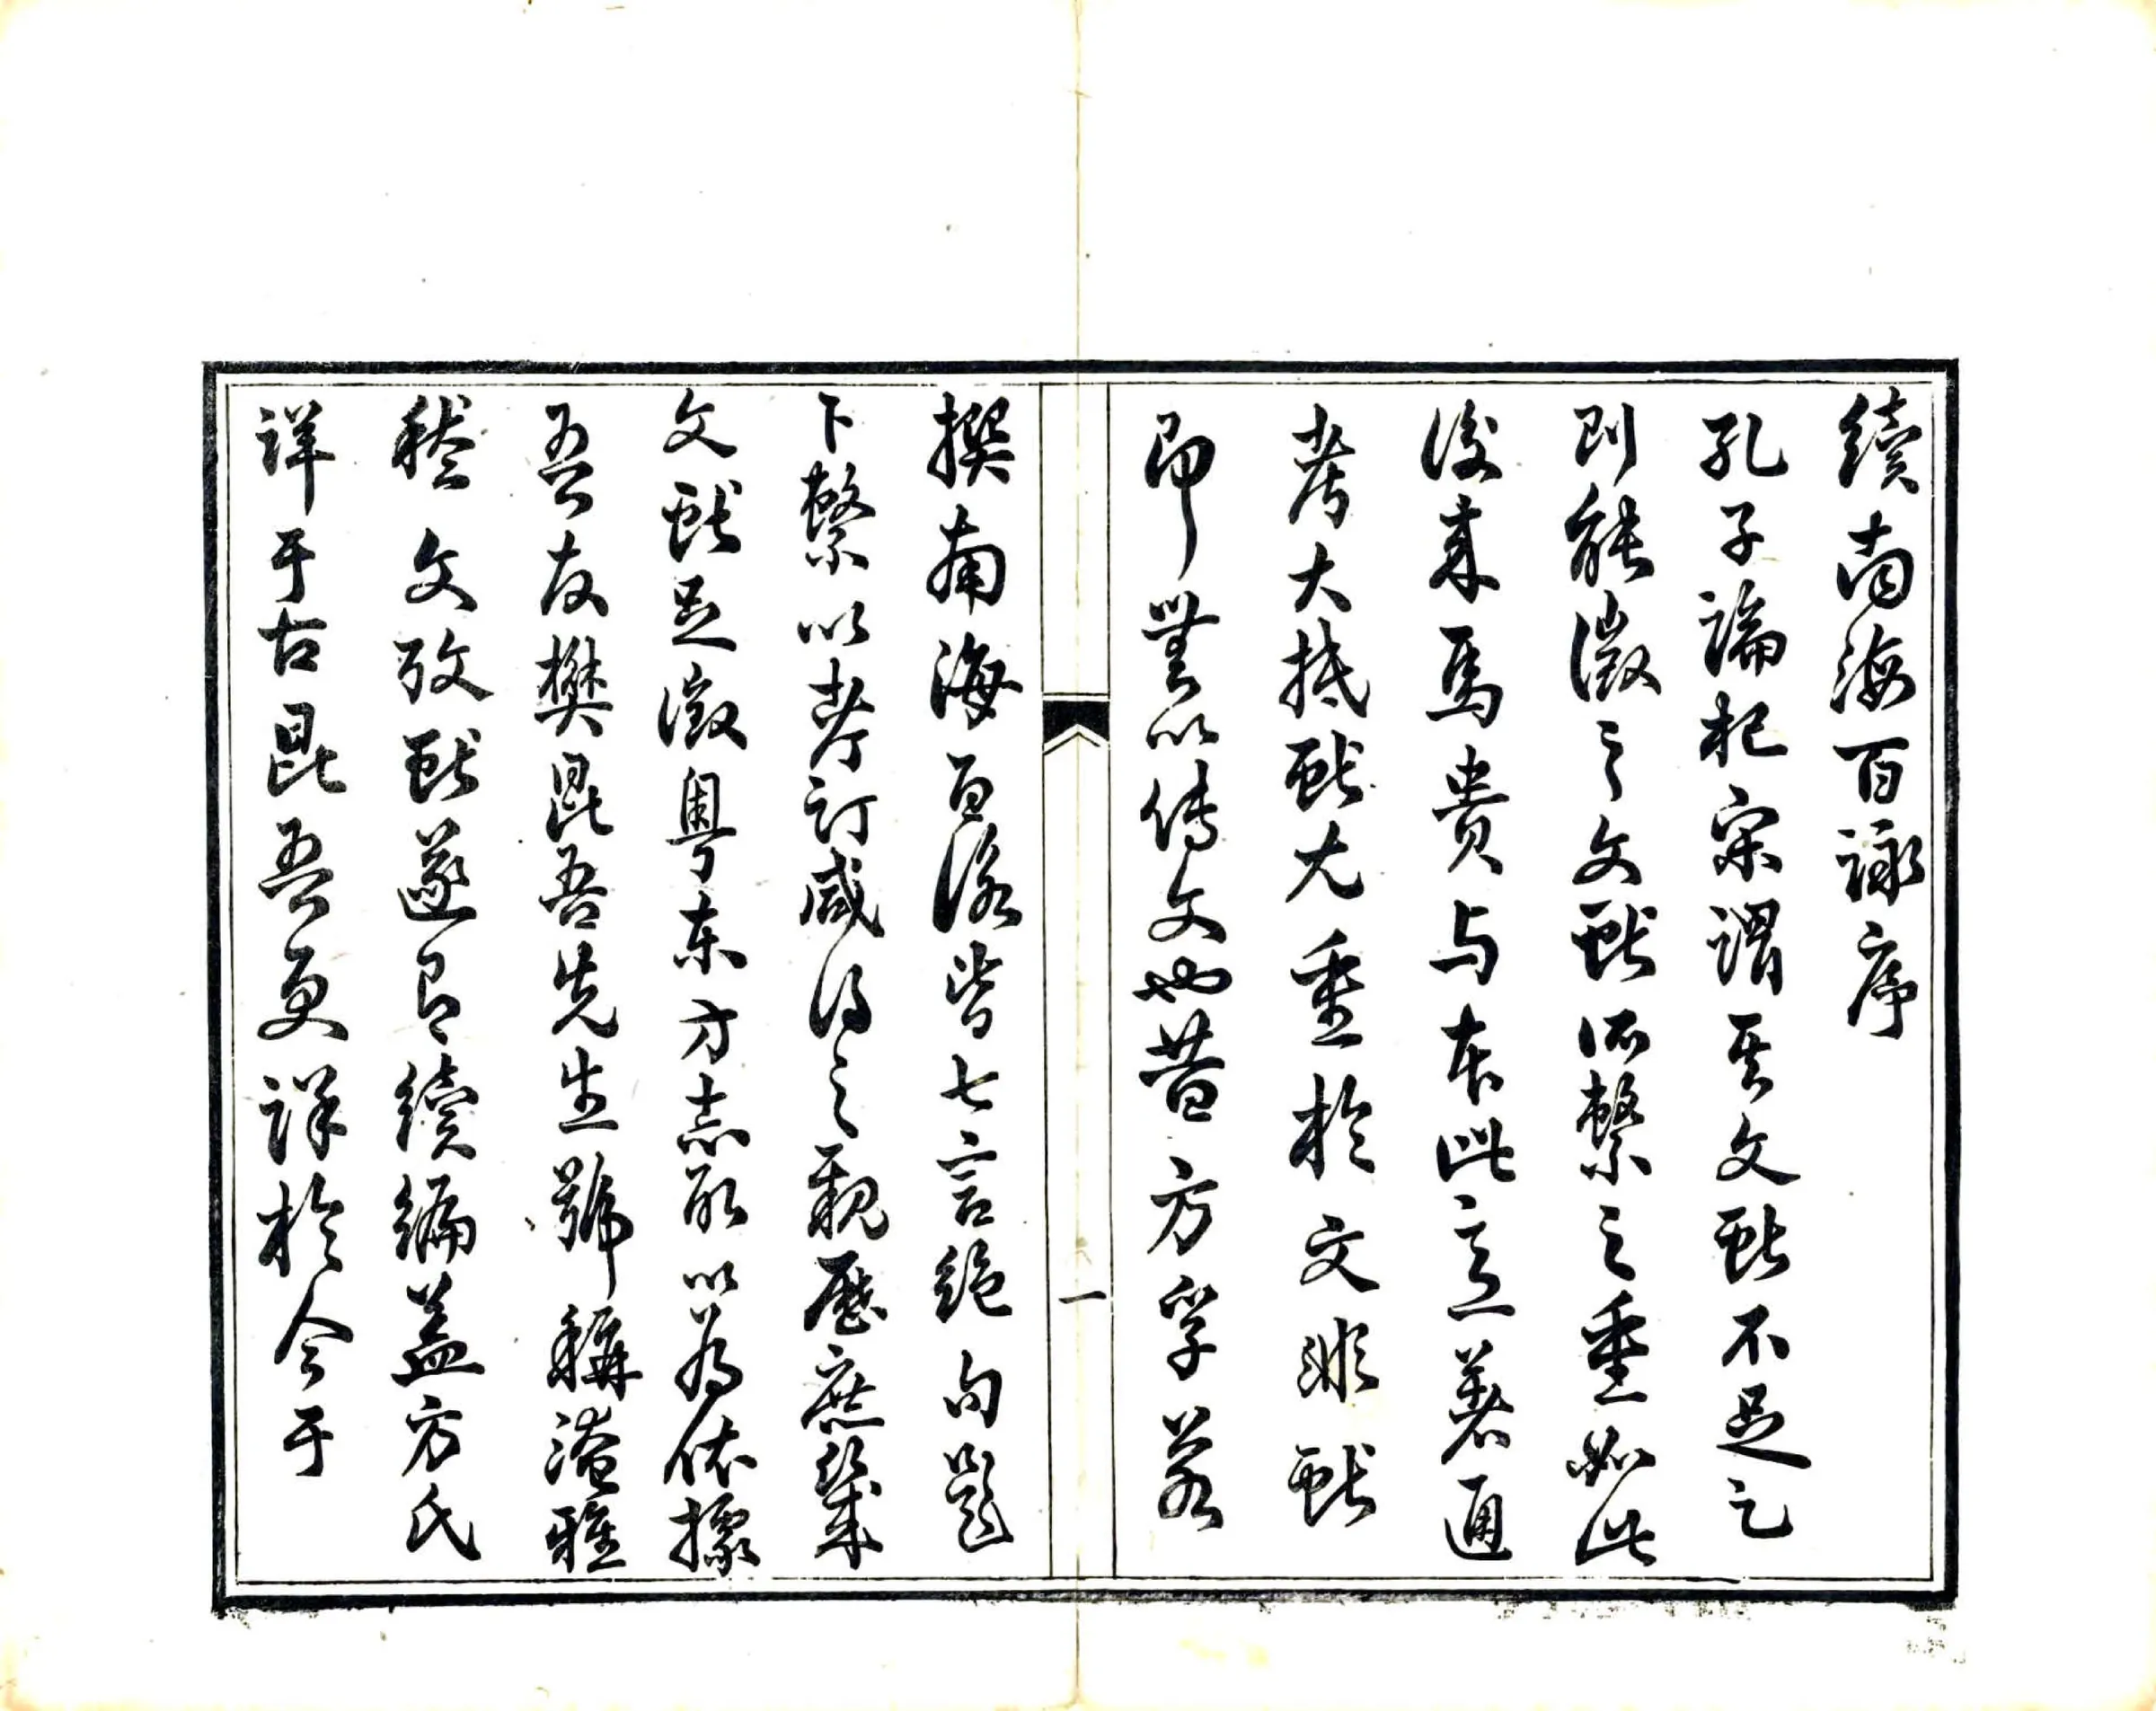 續南海百詠序
孔子論杞宋謂其文獻不足足
則能徵之文獻所繫之重如此
後来馬貴与本此意著通
考大抵獻尤重於文非獻
即無以傳文也昔方孚若
撰南海百詠皆七言絕句題
下繫以考訂咸得之親歷庶幾
文獻足徵粵東方志取以為依據
吾友樊昆吾先生號稱淹雅
稽文攷獻遂有續編蓋方氏
詳于古昆吾更詳於今于
一